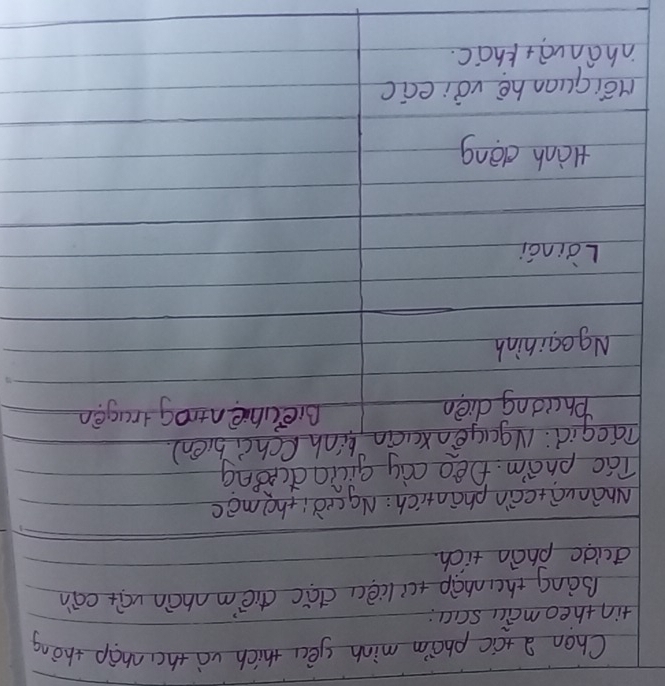 Chọn 2 tác phẩm mình yêu thích và thu nhập thông
tin theo mẫu sau:
Bảng thu nhập tư liệu đặc điểm nhân vật cần
được phân tích.
Nhân vật cần phân tích: Người thợ mộc
Tác phẩm: Đẽo cày giữa đường
Tác giả: Nguyễn Xuân Kính (chủ biên).
Phương diện Biểu hiện trong truyện
Ngoại hình
Lời nói
Hành động
Mối quan hệ với các
nhân vật khác.